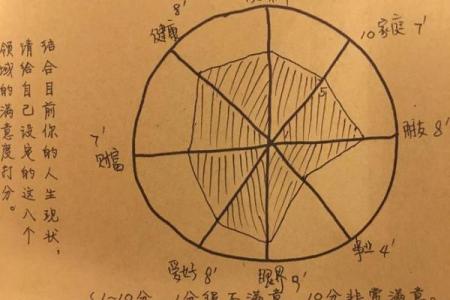 8'
健康
10 家庭 7'
5
朋友 8'
事业 4'
眼界 9'
爱好 8'
7'
财富
结合目前你的人生现状，
请给自己设定的这八个
领域的满意度打分。
(1~10分，1分很不满意，10分非常满意。